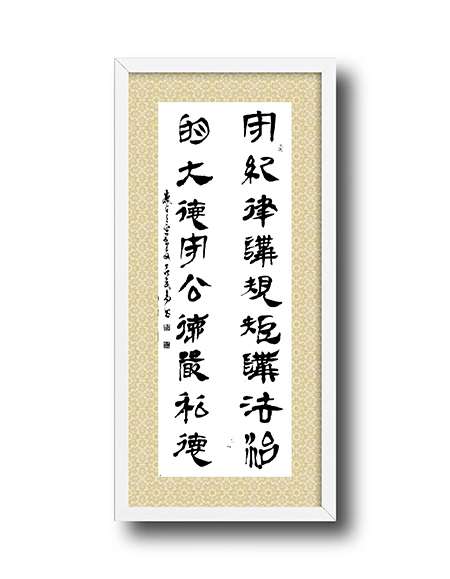 守紀律講規矩講法治
明大德守公德嚴私德